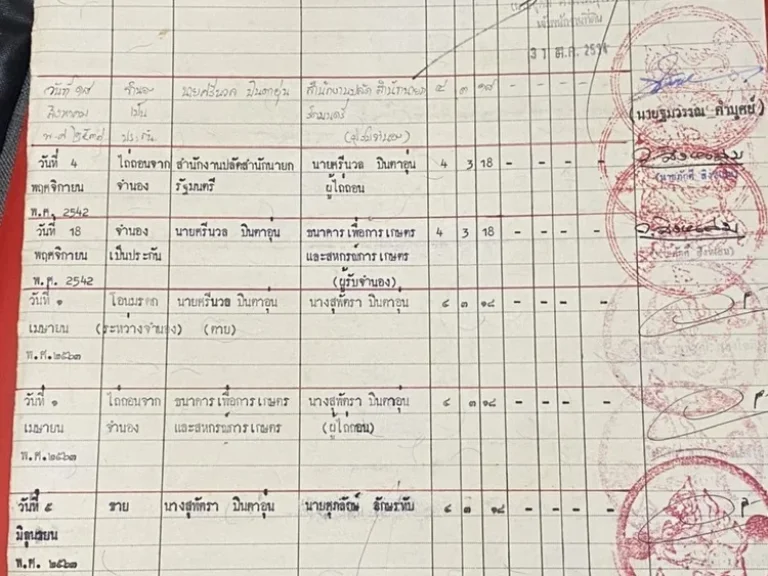 31 ต.ค. 25
จำนอง นายศรีนวล ปินตาอุ่น สำนักงานปลัด สำนักนายก ๔ ๓ ๑๘ - - - -
สิงหาคม เป็น รัฐมนตรี
พ.ศ. ประกัน (ผู้รับจำนอง)
(นายฐมวรรณ คำบุศย์)
วันที่ 4 ไถ่ถอนจาก สำนักงานปลัดสำนักนายก นายศรีนวล ปินตาอุ่น 4 3 18 - - - -
พฤศจิกายน จำนอง รัฐมนตรี ผู้ไถ่ถอน
พ.ศ. 2542
วันที่ 18 จำนอง นายศรีนวล ปินตาอุ่น ธนาคาร เพื่อการเกษตร 4 3 18 - - - -
พฤศจิกายน เป็นประกัน และสหกรณ์การเกษตร
พ.ศ. 2542 (ผู้รับจำนอง)
วันที่ ๑ โอนมรดก นายศรีนวล ปินตาอุ่น นางสุพัตรา ปินตาอุ่น ๔ ๓ ๑๘ - - - -
เมษายน (ระหว่างจำนอง) (ตาย)
พ.ศ.๒๕๖๓
วันที่ ๑ ไถ่ถอนจาก ธนาคาร เพื่อการเกษตร นางสุพัตรา ปินตาอุ่น ๔ ๓ ๑๘ - - - -
เมษายน จำนอง และสหกรณ์การเกษตร (ผู้ไถ่ถอน)
พ.ศ.๒๕๖๓
วันที่ ๕ ขาย นางสุพัตรา ปินตาอุ่น นายศุภลักษ์ อักษรทับ ๔ ๓ ๑๘ - - - -
มิถุนายน
พ.ศ. ๒๕๖๓